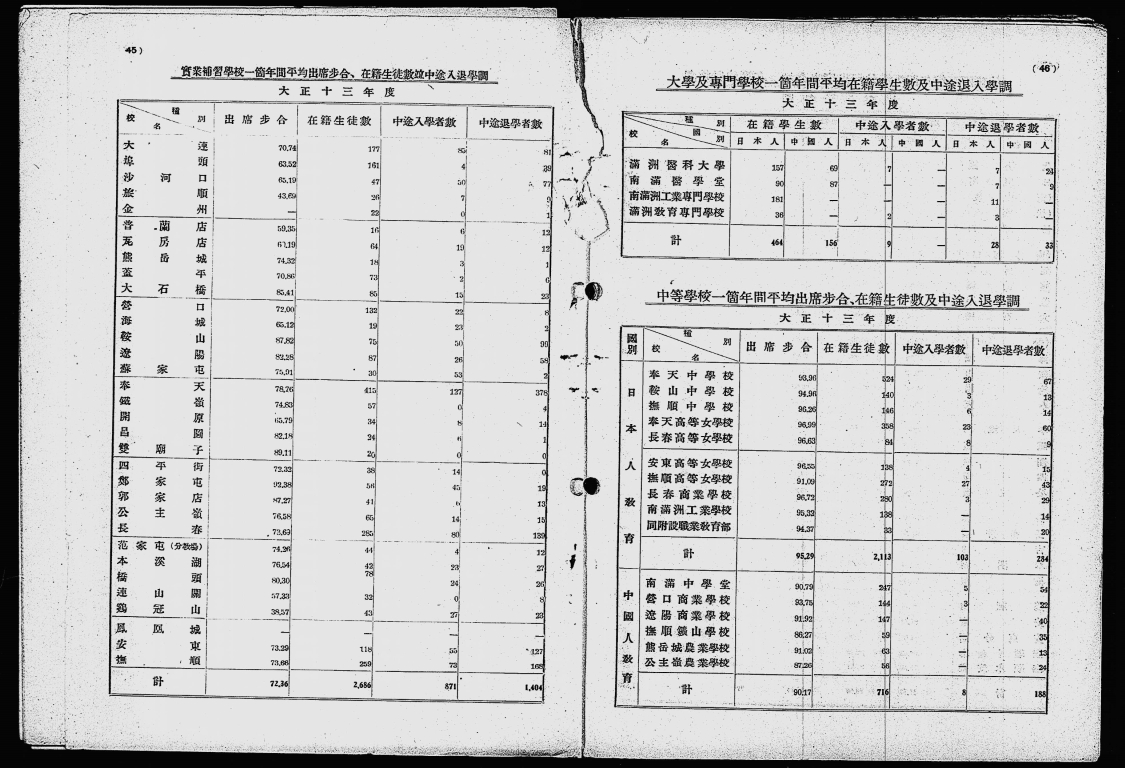 45)
實業補習學校一箇年間平均出席步合、在籍生徒數並中途入退學調
大正十三年度
種別 校名 出席步合 在籍生徒數 中途入學者數 中途退學者數
大連 70,74 177 85 81
埠頭 63,52 161 4 39
沙河口 65,19 47 50 77
旅順 43,69 26 7 9
金州 — 22 0 1
普蘭店 59,35 16 6 12
瓦房店 64 19 12
熊岳城 74,32 18 3 1
蓋平 70,86 73 2 6
大石橋 85,41 85 15 23
營口 72,00 132 22 8
海城 65,12 19 23 2
鞍山 87,82 75 50 99
遼陽 82,28 87 26 58
蘇家屯 75,91 30 53 2
奉天 78,76 415 127 378
鐵嶺 74,83 57 0 4
開原 65,79 34 8 14
昌圖 82,18 24 6 1
雙廟子 89,11 20 0 0
四平街 72,32 38 14 0
鄭家屯 92,38 56 45 19
郭家店 87,27 41 6 13
公主嶺 76,58 65 14 15
長春 73,69 285 80 139
范家屯(分教場) 74,26 44 4 12
本溪湖 76,54 42 23 27
橋頭 80,30 78 24 26
連山關 57,33 32 0 8
鷄冠山 38,57 43 27 23
鳳凰城 — — — —
安東 73,29 118 55 127
撫順 73,66 259 73 168
計 72,36 2,686 871 1,404
(46)
大學及專門學校一箇年間平均在籍學生數及中途退入學調
大正十三年度
種別 國別 校名 在籍學生數 中途入學者數 中途退學者數
日本人 中國人 日本人 中國人 日本人 中國人
滿洲醫科大學 157 69 7 — 7 24
南滿醫學堂 90 87 — — 7 9
南滿洲工業專門學校 181 — — — 11 —
滿洲教育專門學校 36 — 2 — 3 —
計 464 156 9 — 28 33
中等學校一箇年間平均出席步合、在籍生徒數及中途入退學調
大正十三年度
國別 種別 校名 出席步合 在籍生徒數 中途入學者數 中途退學者數
日本人教育
奉天中學校 93,96 524 29 67
鞍山中學校 94,96 140 3 13
撫順中學校 96,26 146 6 14
奉天高等女學校 96,99 358 23 60
長春高等女學校 96,63 84 8 9
安東高等女學校 96,55 138 4 15
撫順高等女學校 91,09 272 27 43
長春商業學校 96,72 280 3 29
南滿洲工業學校 95,33 138 — 14
同附設職業教育部 94,37 33 — 20
計 95,29 2,113 103 284
中國人教育
南滿中學堂 90,79 247 5 54
營口商業學校 93,75 144 3 22
遼陽商業學校 91,92 147 — 40
撫順鑛山學校 86,27 59 — 35
熊岳城農業學校 91,02 63 — 13
公主嶺農業學校 87,26 56 — 24
計 90,17 716 8 188